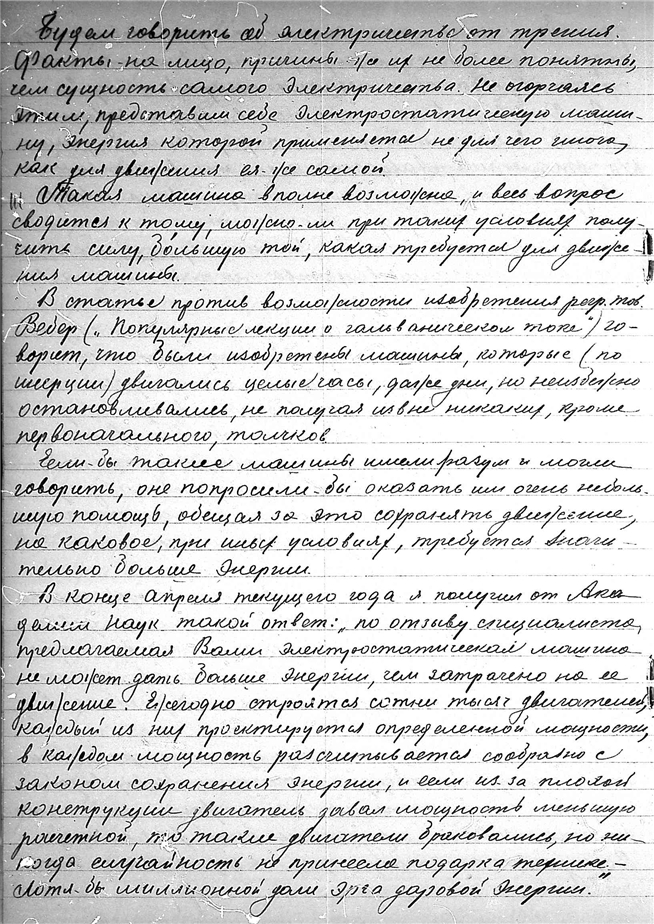 Будем говорить об электричестве от трения.
Факты на лицо, причины же их не более понятны,
чем сущность самого электричества. Не огорчаясь
этим, представим себе электростатическую маши-
ну, энергия которой применяется не для чего иного,
как для движения ея-же самой.
Такая машина вполне возможна, и весь вопрос
сводится к тому, можно-ли при таких условиях полу-
чить силу, большую той, какая требуется для движе-
ния машины.
В статье против возможности изобретения perp. mob.
Вебер („Популярные лекции о гальваническом токе") го-
ворит, что были изобретены машины, которые (по
инерции) двигались целые часы, даже дни, но неизбежно
останавливались, не получая извне никаких, кроме
первоначального, толчков.
Если-бы такие машины имели разум и могли
говорить, оне попросили-бы оказать им очень неболь-
шую помощь, обещая за это сохранять движение,
на каковое, при иных условиях, требуется значи-
тельно больше энергии.
В конце апреля текущего года я получил от Ака
демии Наук такой ответ: „по отзыву специалиста,
предлагаемая Вами электростатическая машина
не может дать больше энергии, чем затрачено на ее
движение. Ежегодно строятся сотни тысяч двигателей,
каждый из них проектируется определенной мощности,
в каждом мощность рассчитывается сообразно с
законом сохранения энергии, и если из за плохой
конструкции двигатель давал мощность меньшую
расчетной, то такие двигатели браковались, но ни-
когда случайность не принесла подарка технике –
хотя-бы миллионной доли эрга даровой энергии."